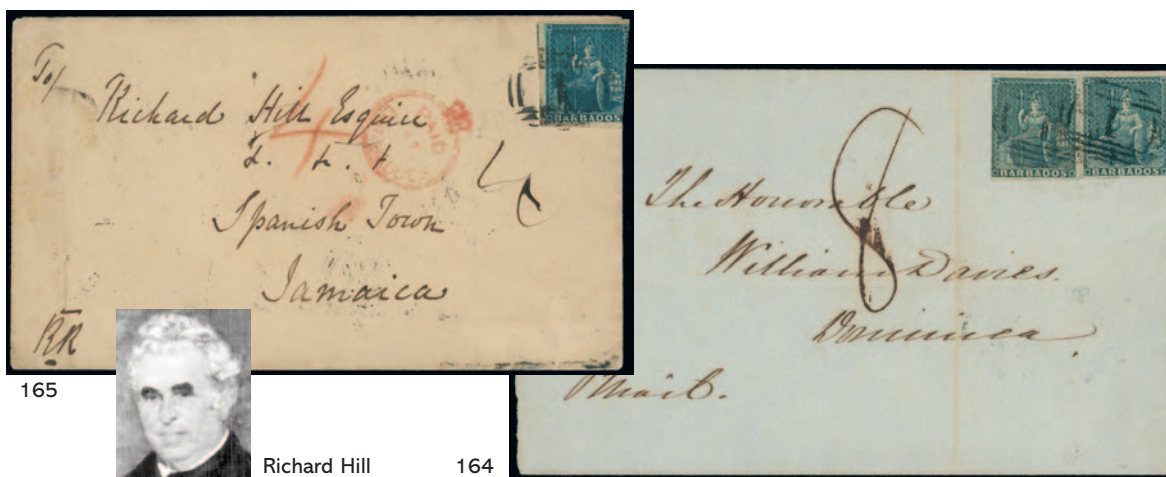 To/
Richard Hill Esquire
Spanish Town
Jamaica
4
PAID
BARBADOS
165
Richard Hill
8
The Honorable
William Davies.
Dominica
BARBADOS
BARBADOS
164